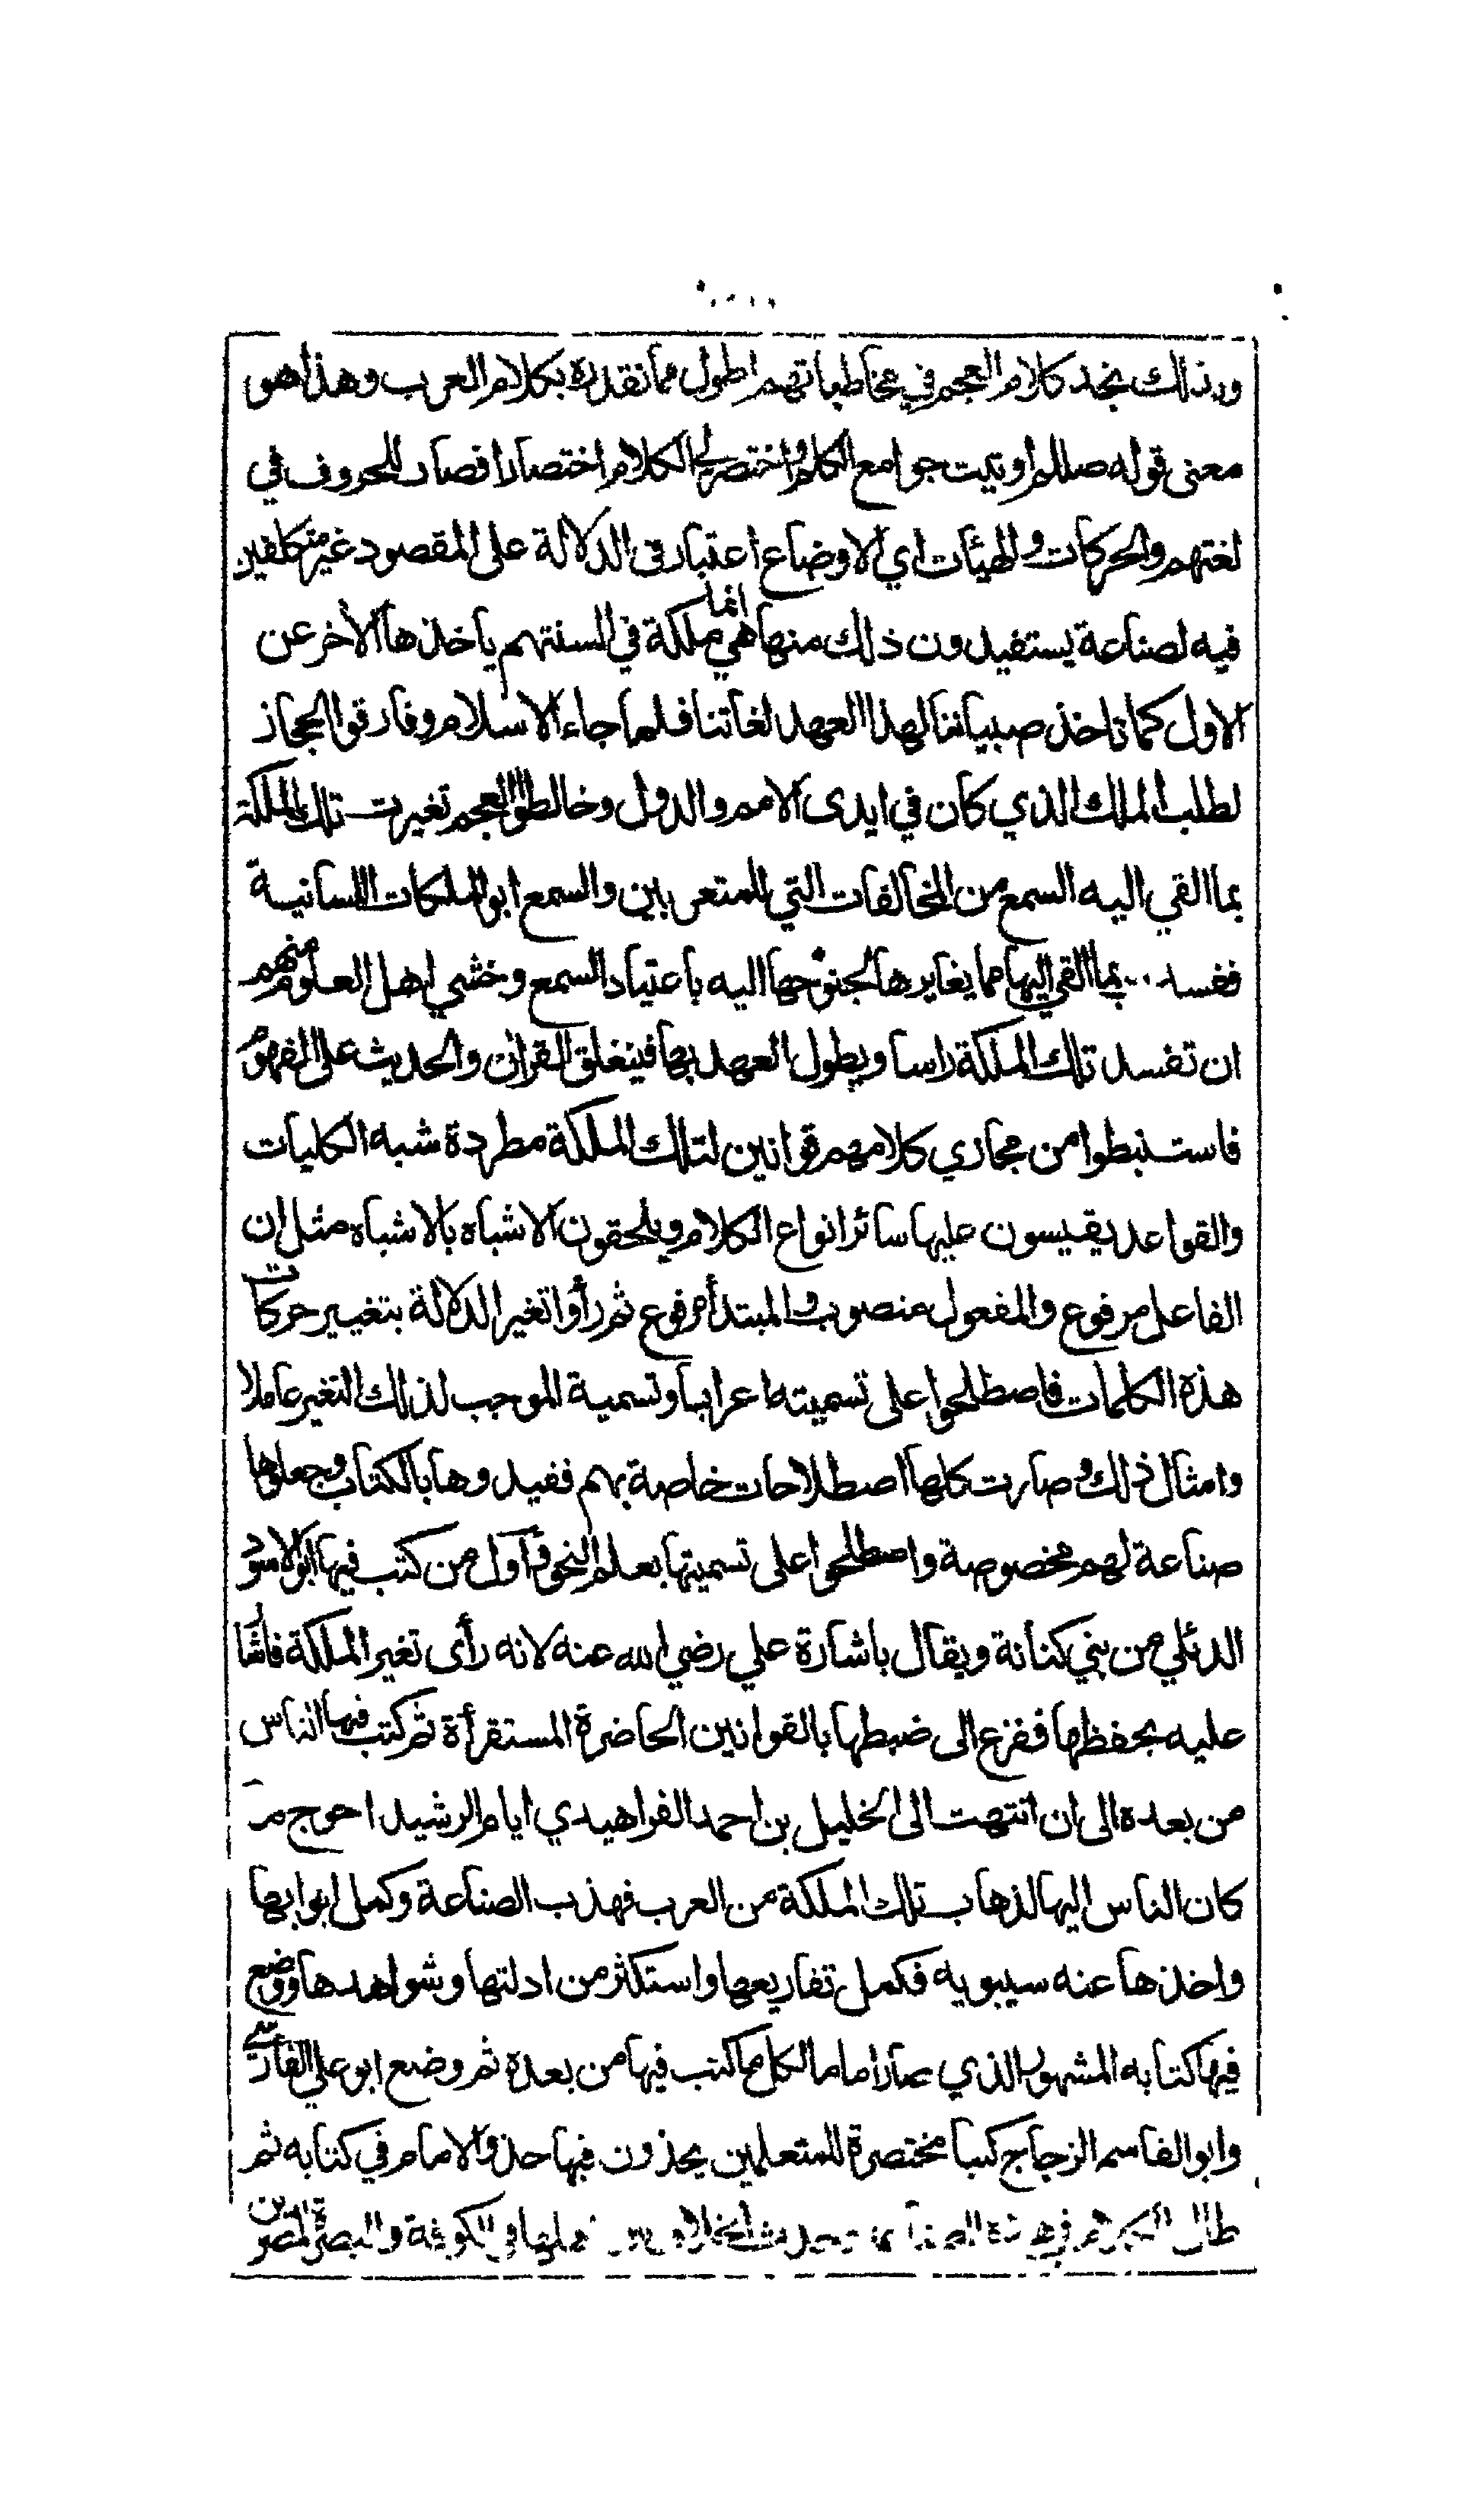 ولذلك نجد كلام العجم في مخاطباتهم اطول مما نقدره بكلام العرب وهذا هو
معنى قوله صللم اوتيت جوامع الكلم واختصر لي الكلام اختصارا فصار للحروف في
لغتهم والحركات والهيئات اي الاوضاع اعتبار في الدلالة على المقصود غير متكلفين
فيه لصناعة يستفيدون ذلك منها انما هي ملكة في السنتهم ياخذها الاخر عن
الاول كما تاخذ صبياننا لهذا العهد لغاتنا فلما جاء الاسلام وفارقوا الحجاز
لطلب الملك الذي كان في ايدى الامم والدول وخالطوا العجم تغيرت تلك الملكة
بما القي اليه السمع من المخالفات التي للمتعربين والسمع ابو الملكات اللسانية
ففسد بما القي اليها مما يغايرها لجنوحها اليه باعتياد السمع وخشي اهل العلوم منهم
ان تفسد تلك الملكة راسا ويطول العهد بها فينغلق القران والحديث على المفهوم
فاستنبطوا من مجاري كلامهم قوانين لتلك الملكة مطردة شبه الكليات
والقواعد يقيسون عليها سائر انواع الكلام ويلحقون الاشباه بالاشباه مثل ان
الفاعل مرفوع والمفعول منصوب والمبتدأ مرفوع ثم رأوا تغير الدلالة بتغيير حركات
هذه الكلمات فاصطلحوا على تسميته اعرابا وتسمية الموجب لذلك التغير عاملا
وامثال ذلك وصارت كلها اصطلاحات خاصة بهم فقيدوها بالكتاب وجعلوها
صناعة لهم مخصوصة واصطلحوا على تسميتها بعلم النحو واول من كتب فيها ابو الاسود
الدئلي من بني كنانة ويقال باشارة علي رضي الله عنه لانه رأى تغير الملكة فاشار
عليه بحفظها ففزع الى ضبطها بالقوانين الحاضرة المستقرأة ثم كتب فيها الناس
من بعده الى ان انتهت الى الخليل بن احمد الفراهيدي ايام الرشيد احوج ما
كان الناس اليها لذهاب تلك الملكة من العرب فهذب الصناعة وكمل ابوابها
واخذها عنه سيبويه فكمل تفاريعها واستكثر من ادلتها وشواهدها ووضع
فيها كتابه المشهور الذي صار اماما لكل ما كتب فيها من بعده ثم وضع ابو علي الفارسي
وابو القاسم الزجاج كتبا مختصرة للمتعلمين يحذون فيها حذو الامام في كتابه ثم
طال الكلام في هذه الصناعة وحدث الخلاف بين اهلها في الكوفة والبصرة المصرين